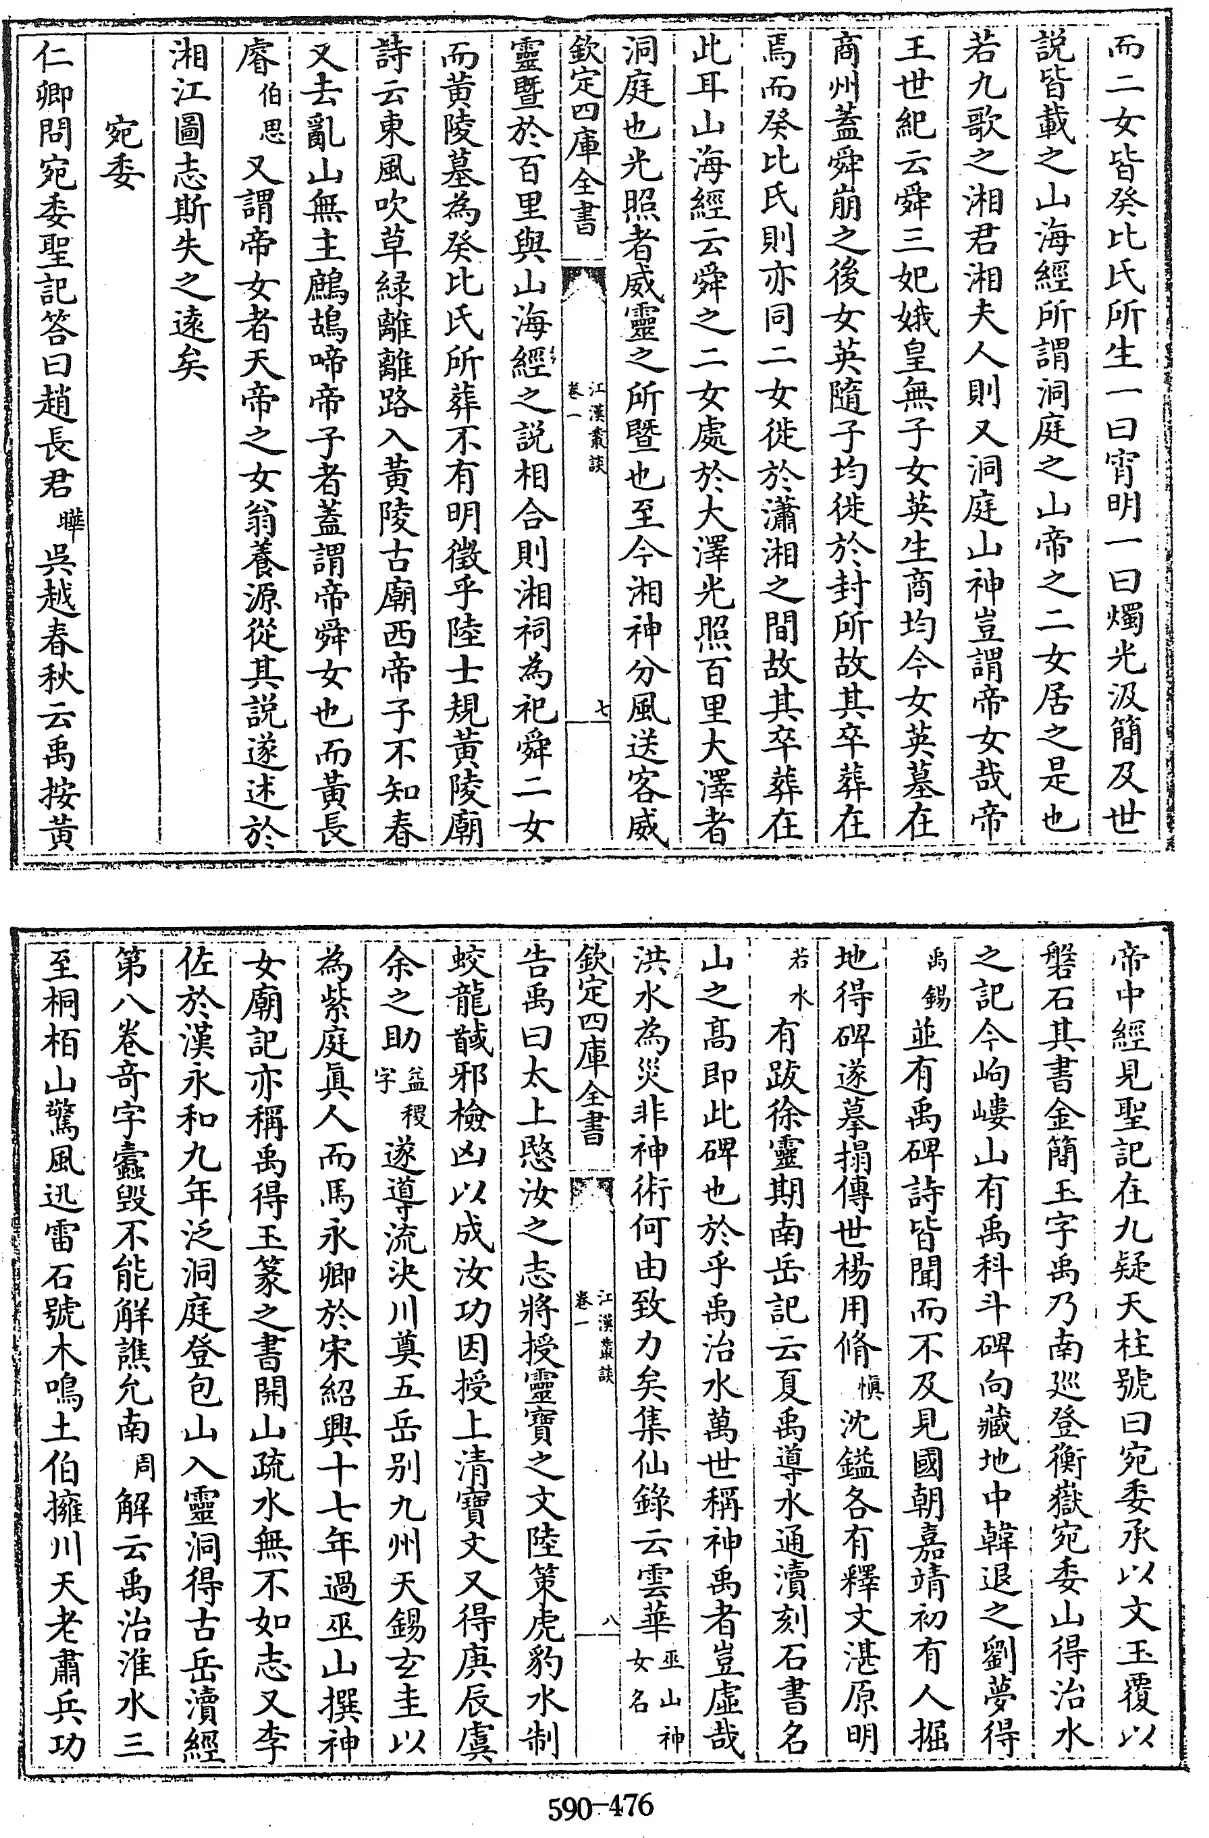 而二女皆癸比氏所生一曰宵明一曰燭光汲簡及世
説皆載之山海經所謂洞庭之山帝之二女居之是也
若九歌之湘君湘夫人則又洞庭山神豈謂帝女哉帝
王世紀云舜三妃娥皇無子女英生商均今女英墓在
商州蓋舜崩之後女英隨子均徙於封所故其卒葬在
焉而癸比氏則亦同二女徙於瀟湘之間故其卒葬在
此耳山海經云舜之二女處於大澤光照百里大澤者
洞庭也光照者威靈之所暨也至今湘神分風送客威
欽定四庫全書 江漢叢談 卷一 七
靈暨於百里與山海經之説相合則湘祠為祀舜二女
而黃陵墓為癸比氏所葬不有明徴乎陸士規黃陵廟
詩云東風吹草緑離離路入黃陵古廟西帝子不知春
又去亂山無主鷓鴣啼帝子者蓋謂帝舜女也而黃長
睿伯思又謂帝女者天帝之女翁養源從其説遂述於
湘江圖志斯失之遠矣
宛委
仁卿問宛委聖記答曰趙長君曄吳越春秋云禹按黃
帝中經見聖記在九疑天柱號曰宛委承以文玉覆以
磐石其書金簡玉字禹乃南廵登衡嶽宛委山得治水
之記今岣嶁山有禹科斗碑向藏地中韓退之劉夢得
禹錫並有禹碑詩皆聞而不及見國朝嘉靖初有人掘
地得碑遂摹搨傳世楊用脩慎沈鎰各有釋文湛原明
若水有跋徐靈期南岳記云夏禹導水通瀆刻石書名
山之髙即此碑也於乎禹治水萬世稱神禹者豈虛哉
洪水為災非神術何由致力矣集仙錄云雲華巫山神女名
欽定四庫全書 江漢叢談 卷一 八
告禹曰太上愍汝之志將授靈寶之文陸策虎豹水制
蛟龍馘邪檢凶以成汝功因授上清寶文又得庚辰虞
余之助益稷字遂導流决川奠五岳别九州天錫玄圭以
為紫庭眞人而馬永卿於宋紹興十七年過巫山撰神
女廟記亦稱禹得玉篆之書開山疏水無不如志又李
佐於漢永和九年泛洞庭登包山入靈洞得古岳瀆經
第八卷竒字蠧毀不能解譙允南周解云禹治淮水三
至桐栢山驚風迅雷石號木鳴土伯擁川天老肅兵功
590-476